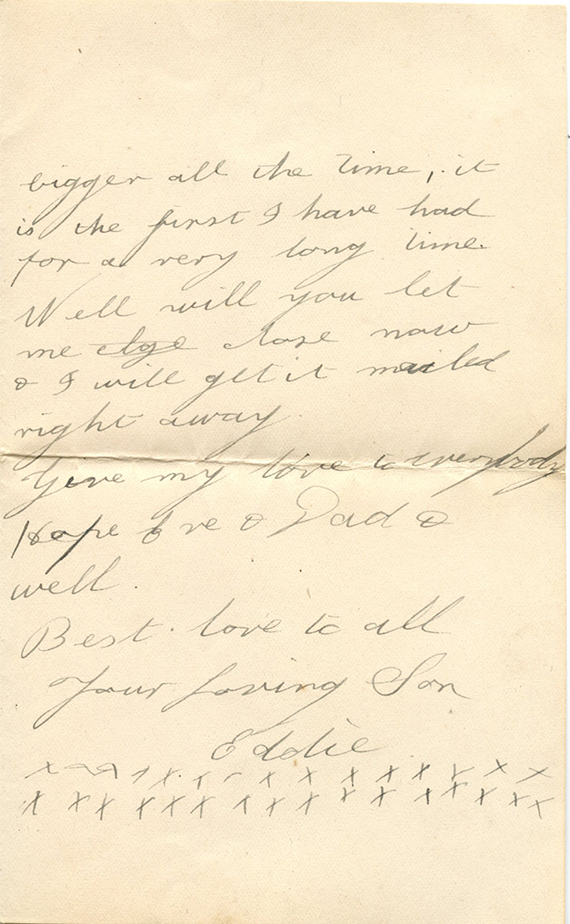 bigger all the time, it
is the first I have had
for a very long time.
Well will you let
me close now
& I will get it mailed
right away.
Give my love to everybody
Hope & Dad &
well.
Best love to all
Your loving Son
Eddie
x x x x x x x x x x x x
x x x x x x x x x x x x x x x x